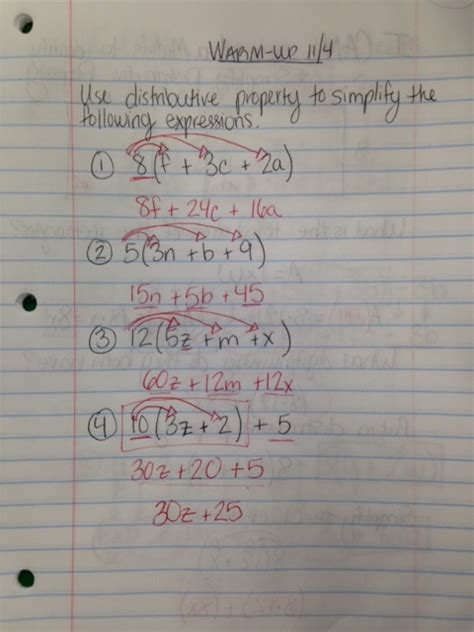 WARM-UP 11/4
Use distributive property to simplify the
following expressions.
① 8(f + 3c + 2a)
8f + 24c + 16a
② 5(3n + b + 9)
15n + 5b + 45
③ 12(5z + m + x)
60z + 12m + 12x
④ 10(3z + 2) + 5
30z + 20 + 5
30z + 25